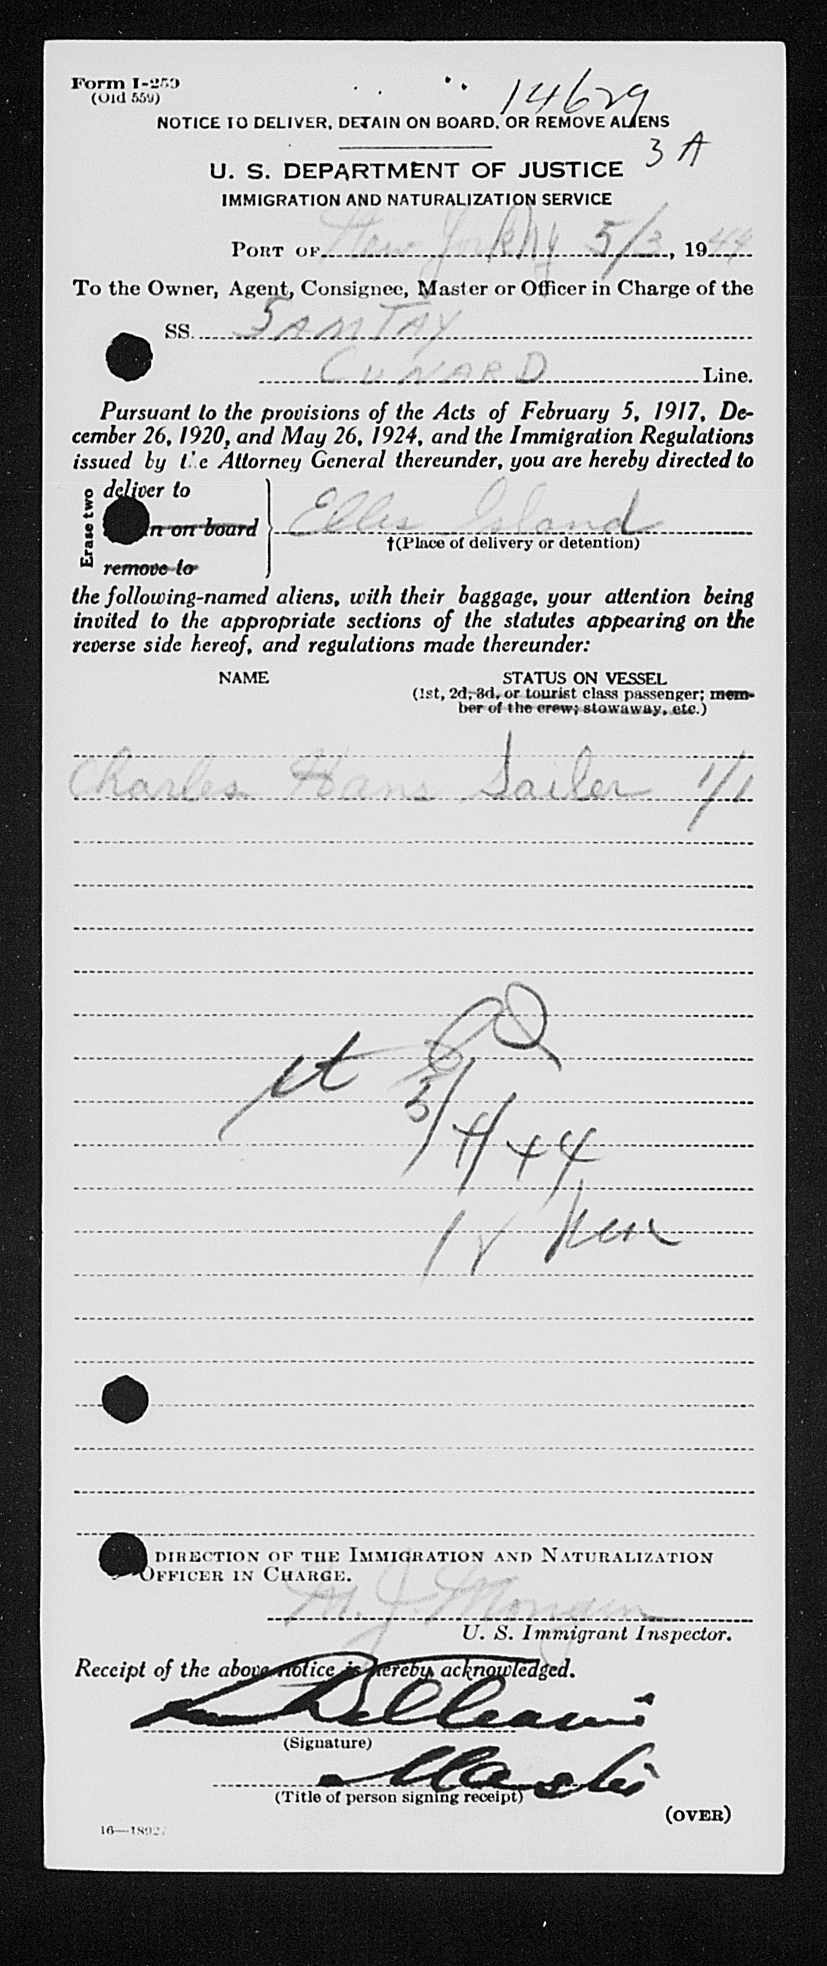 Form I-259
(Old 559)
14629
NOTICE TO DELIVER, DETAIN ON BOARD, OR REMOVE ALIENS
3 A
U. S. DEPARTMENT OF JUSTICE
IMMIGRATION AND NATURALIZATION SERVICE
PORT OF New York NY 5/3, 1944
To the Owner, Agent, Consignee, Master or Officer in Charge of the
SS. SAMTAY
CUNARD Line.
Pursuant to the provisions of the Acts of February 5, 1917, De-
cember 26, 1920, and May 26, 1924, and the Immigration Regulations
issued by the Attorney General thereunder, you are hereby directed to
Erase two
deliver to
n on board
Ellis Island
†(Place of delivery or detention)
remove to
the following-named aliens, with their baggage, your attention being
invited to the appropriate sections of the statutes appearing on the
reverse side hereof, and regulations made thereunder:
NAME STATUS ON VESSEL
(1st, 2d, 3d, or tourist class passenger; mem-
ber of the crew; stowaway, etc.)
Charles Hans Sailer 1/1
5/4/44
DIRECTION OF THE IMMIGRATION AND NATURALIZATION
OFFICER IN CHARGE.
M. J.
U. S. Immigrant Inspector.
Receipt of the above notice is hereby acknowledged.
(Signature)
Master
(Title of person signing receipt)
(OVER)